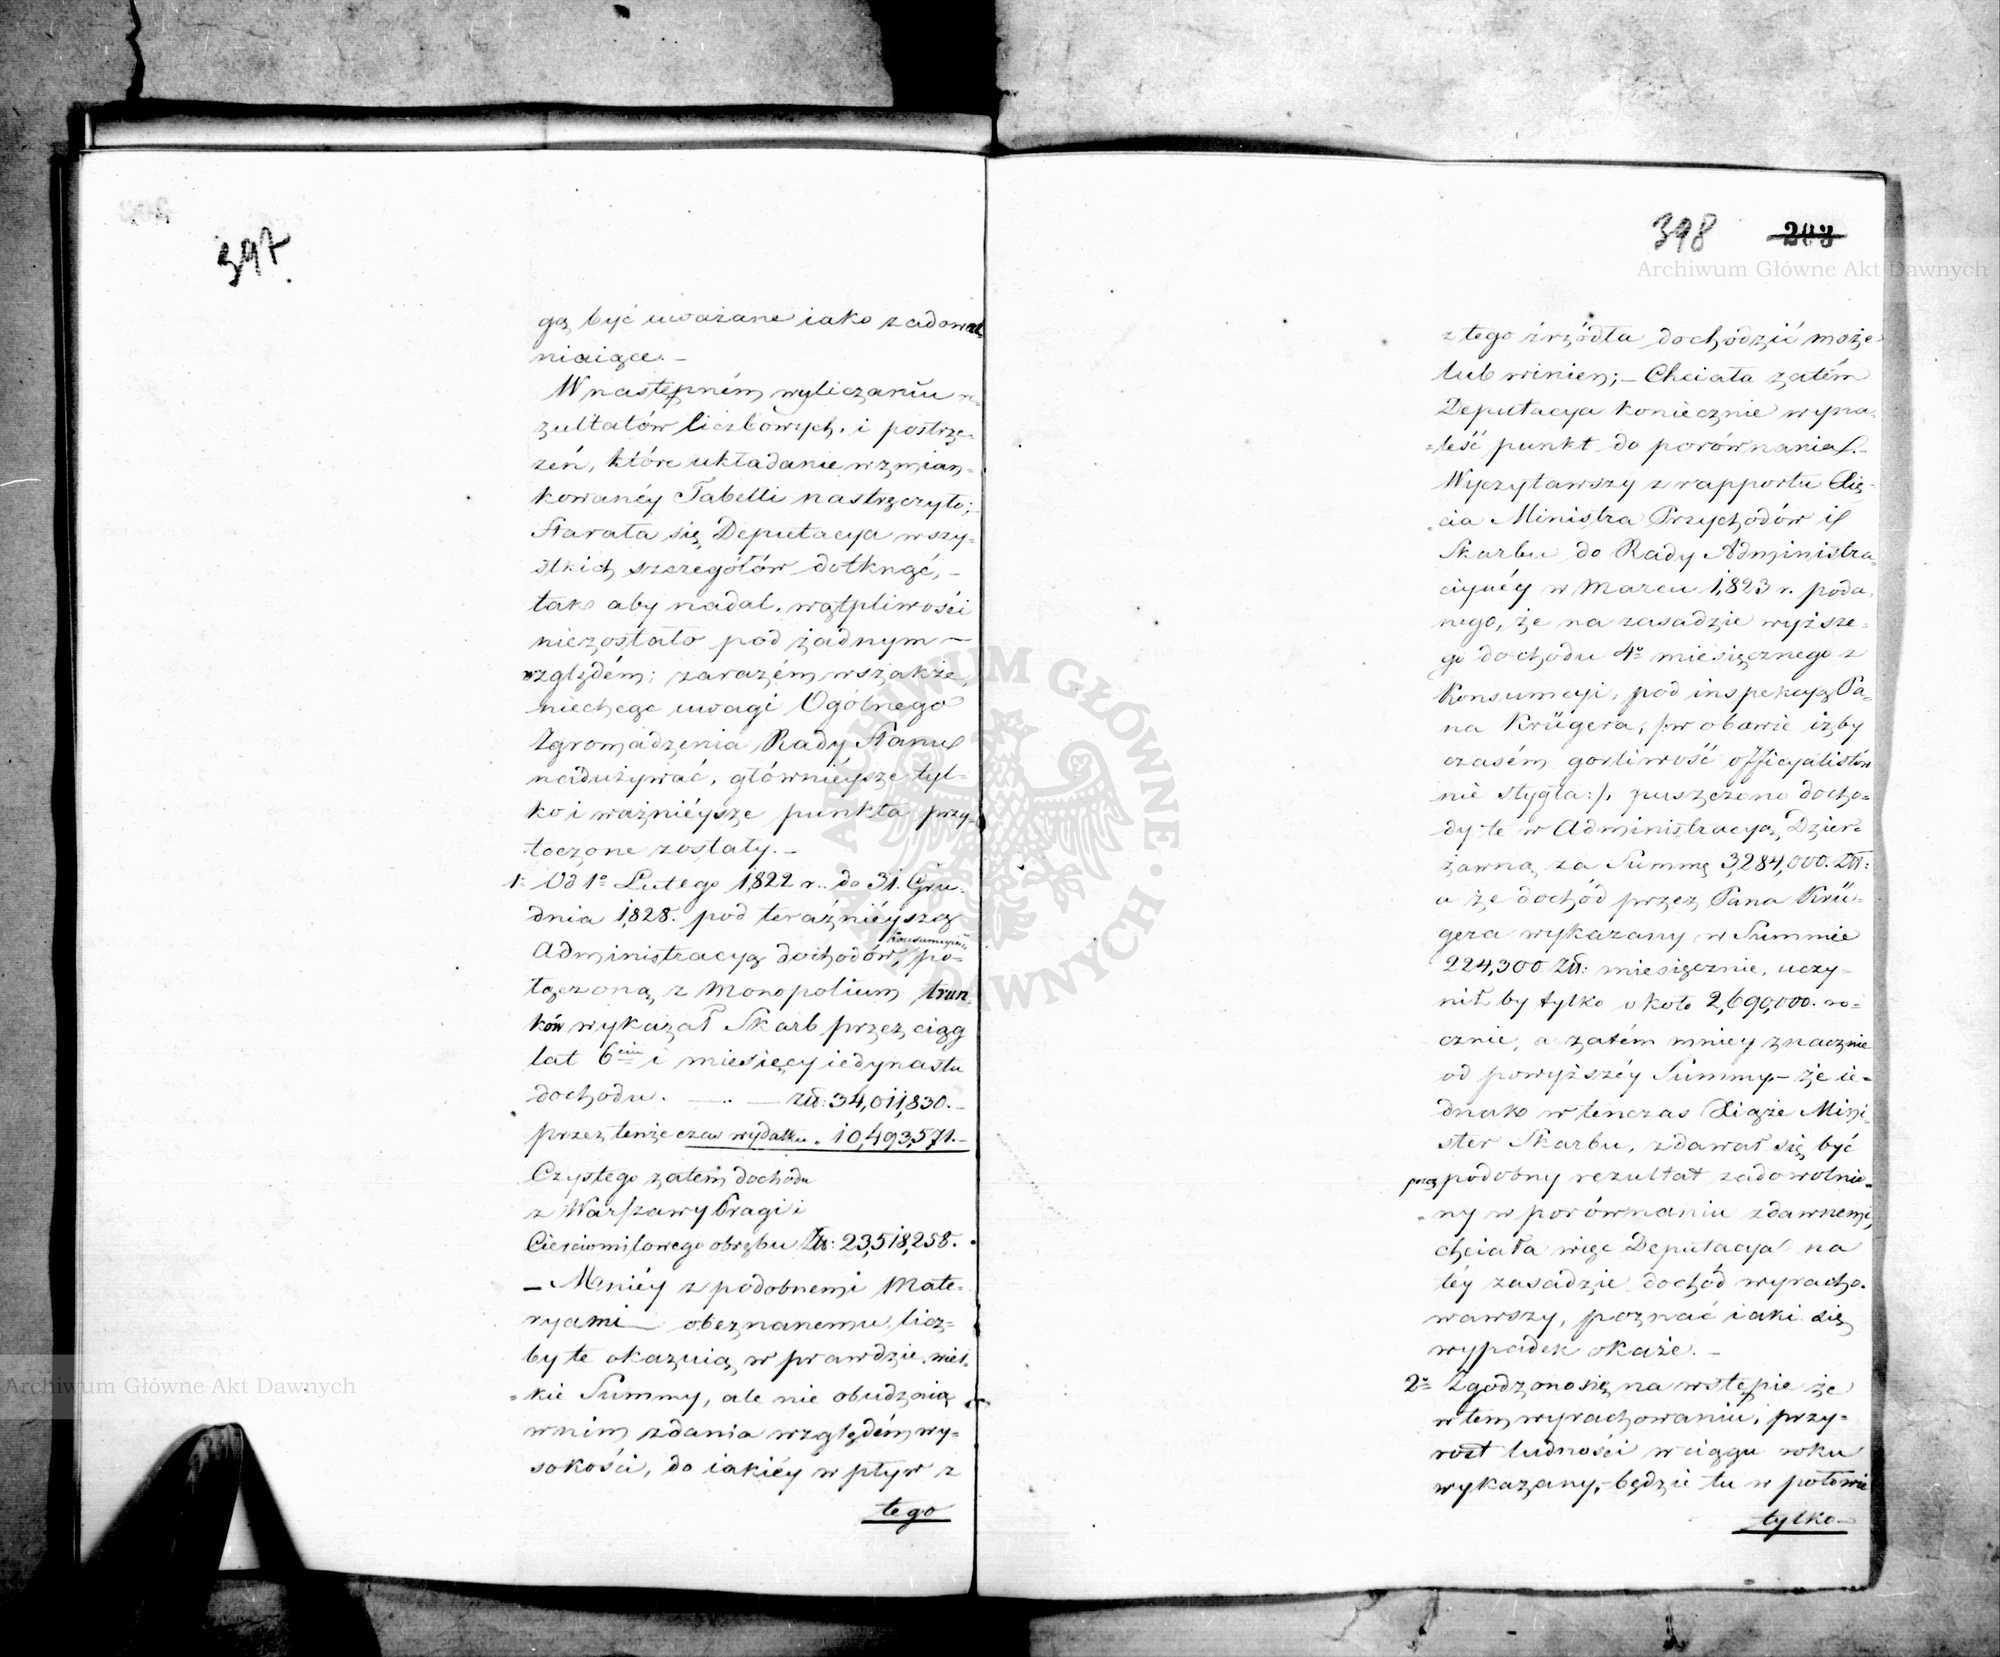 397.
gą być uważane iako zadowal
niaiące. –
W następném wyliczaniu re-
zultatów liczbowych, i postrze-
żeń, które układanie wzmian-
kowanéy Tabelli nastręczyło;
starała się Deputacya wszy-
stkich szczegółów dotknąć, –
tak aby nadal, wątpliwości
niezostało pod żadnym –
względém; zarazém wszakże,
niechcąc uwagi Ogólnego
Zgromadzenia Rady Stanu
nadużywać, główniéysze tyl-
ko i ważniéysze punkta przy-
toczone zostały. –
1. Od 1o Lutego 1822 r. do 31. Gru-
dnia 1828. pod teraźniéyszą
Konsumcyin:
Administracyą dochodów, po-
łączoną z Monopolium trun-
ków wykazał Skarb przez ciąg
lat 6ciu i miesięcy iedynastu
dochodu. — .. — Złl: 34,011,830. –
przez tenże czas wydatku „ 10,493,571. –
Czystego zatém dochodu
z Warszawy Pragi i
Cierciomilowego obrębu Złl: 23,518,258.
– Mniéy z podobnemi Mate-
ryami obeznanemu, licz-
by te okazuią w prawdzie, wiel-
kie Summy, ale nie obudzaią
w nim zdania względém wy-
sokości, do iakiéy wpływ z
tego
398 203
Archiwum Główne Akt Dawnych
z tego źrzódła dochodzić może
lub winien; – Chciała zatém
Deputacya koniecznie wyna-
leść punkt do porównania. –
Wyczytawszy z rapportu Xię-
cia Ministra Przychodów i
Skarbu do Rady Administra-
cyinéy w Marcu 1,823 r. poda-
nego, że na zasadzie wyższe-
go dochodu 4o miesięcznego z
Konsumcyi, pod inspekcyą Pa-
na Krügera, /:w obawie iżby
czasém gorliwość officyalistów
nie stygła:/, puszczono docho-
dy te w Administracyą Dzier-
żawną za Summę 3,284,000. Złl:
a że dochód przez Pana Krü-
gera wykazany, w Summie
224,300 Złl: miesięcznie, uczy-
nił by tylko około 2,690,000. ro-
cznie, a zatém mniey znacznie
od powyższéy Summy – że ie-
dnak w tenczas Xiąże Mini-
ster Skarbu, zdawał się być
przez podobny rezultat zadowolnio-
ny w porównaniu z dawnemi,
chciała więc Deputacya na
téy zasadzie dochód wyracho-
wawszy, poznać iaki się
wypadek okaże. –
2o Zgodzono się na wstępie że
w tem wyrachowaniu, przy-
rost ludności w ciągu roku
wykazany, będzie tu w połowie
tylko
ARCHIWUM GŁÓWNE AKT DAWNYCH
Archiwum Główne Akt Dawnych